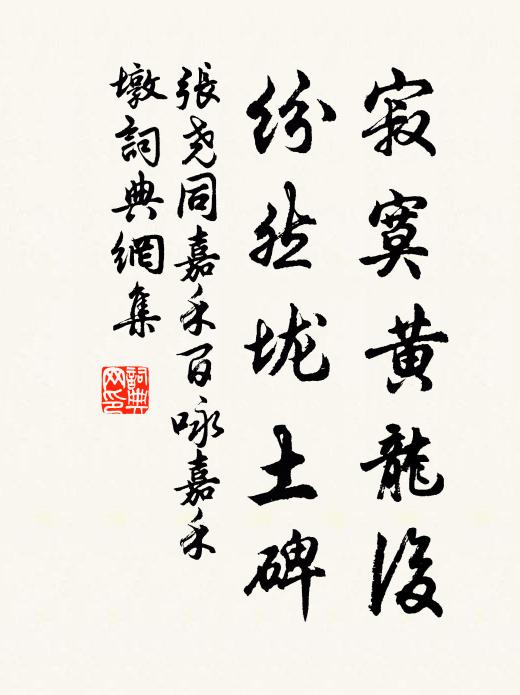 寂寞黄龍後
紛然垅土碑
張尧同嘉禾百咏嘉禾
墩詞典網集
詞典
网印